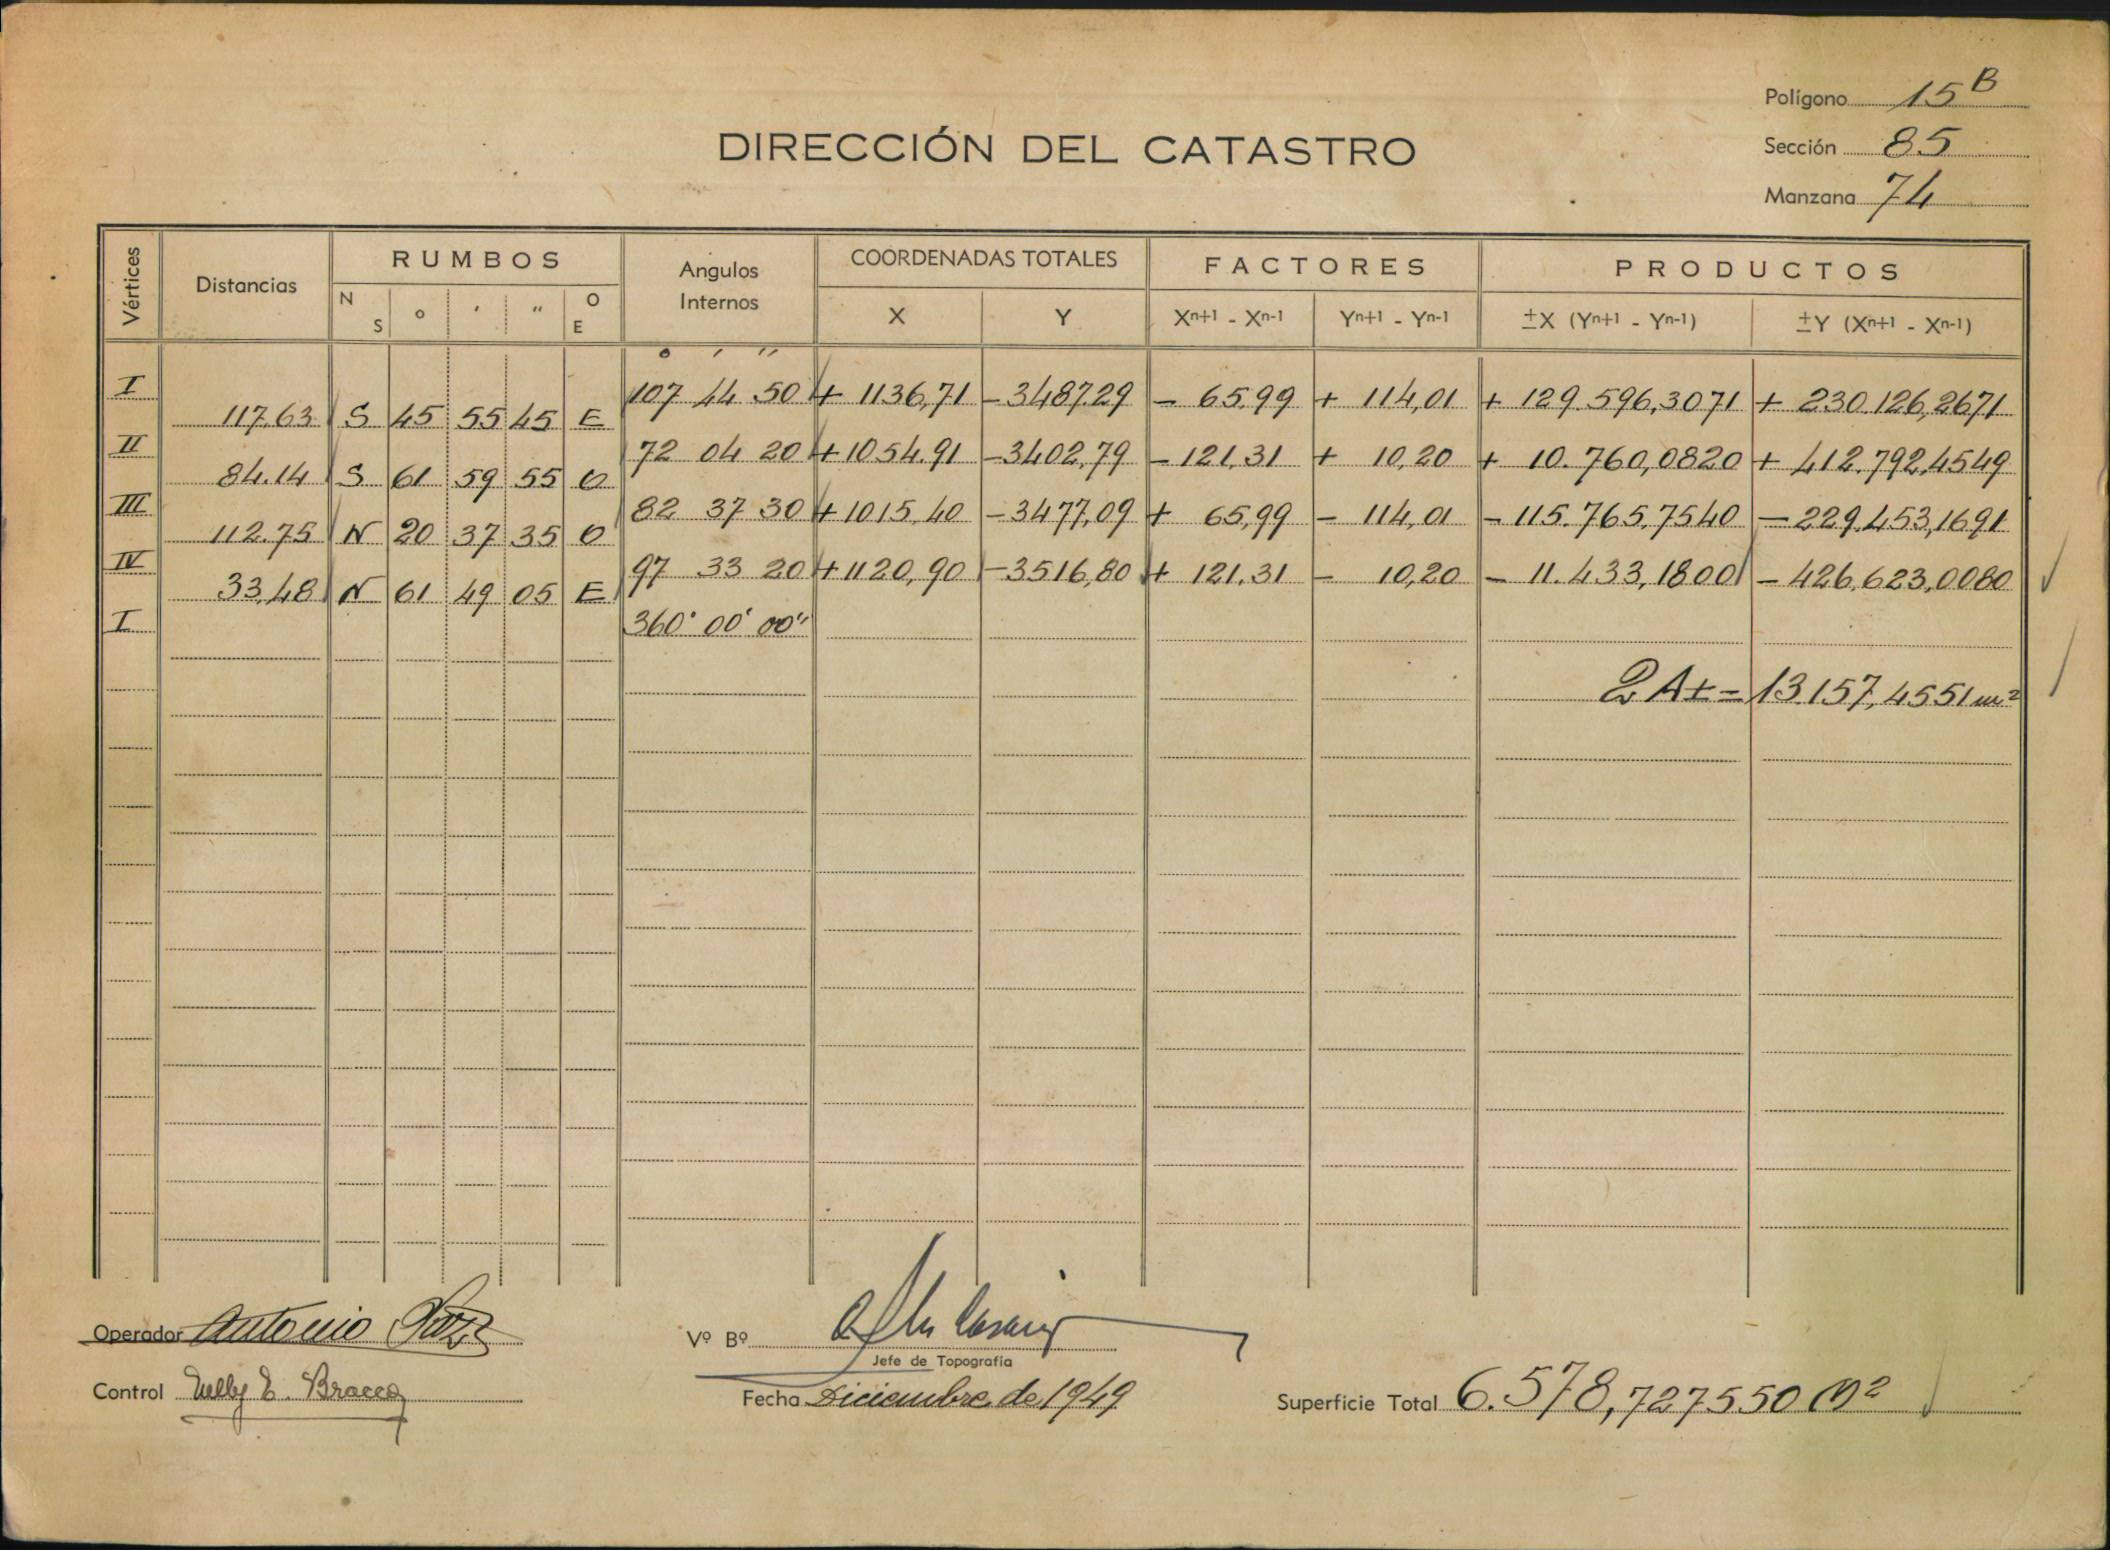 Polígono 15 B
DIRECCIÓN DEL CATASTRO
Sección 85
Manzana 74
Vértices Distancias RUMBOS Angulos Internos COORDENADAS TOTALES FACTORES PRODUCTOS
N S o ' " O E X Y Xn+1 - Xn-1 Yn+1 - Yn-1 ±X (Yn+1 - Yn-1) ±Y (Xn+1 - Xn-1)
o ' "
I 107 44 50 + 1136,71 - 3487.29 - 65.99 + 114,01 + 129.596,3071 + 230.126,2671
117.63 S 45 55 45 E
II 72 04 20 + 1054.91 - 3402,79 - 121,31 + 10,20 + 10.760,0820 + 412.792,4549
84.14 S 61 59 55 O
III 82 37 30 + 1015,40 - 3477,09 + 65,99 - 114,01 - 115.765,7540 - 229.453,1691
112.75 N 20 37 35 O
IV 97 33 20 + 1120,90 - 3516,80 + 121.31 - 10,20 - 11.433,1800 - 426.623,0080
33,48 N 61 49 05 E
I 360° 00' 00"
2 A± = 13.157,4551 m²
Operador Antonio
Vº Bº
Jefe de Topografía
Control Nelly E. Bracco
Fecha Diciembre de 1949
Superficie Total 6.578,727550 m²